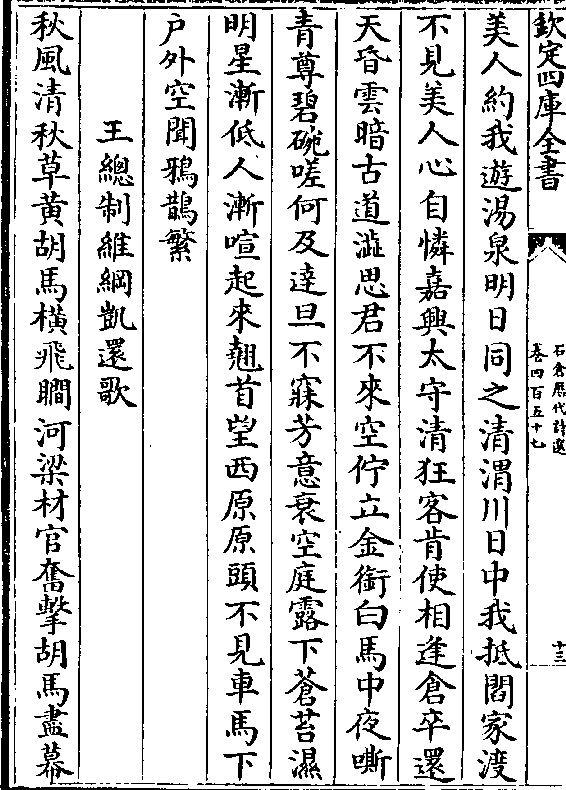 欽定四庫全書
石倉歴代詩選
卷四百五十七
十三
美人約我遊湯泉明日同之清渭川日中我抵閻家渡
不見美人心自憐嘉興太守清狂客肯使相逢倉卒還
天昏雲暗古道澁思君不來空佇立金銜白馬中夜嘶
青尊碧碗嗟何及達旦不寐芳意衰空庭露下蒼苔濕
明星漸低人漸喧起來翹首望西原原頭不見車馬下
户外空聞鴉鵲繁
王總制維綱凱還歌
秋風清秋草黄胡馬橫飛瞷河梁材官奮擊胡馬盡幕